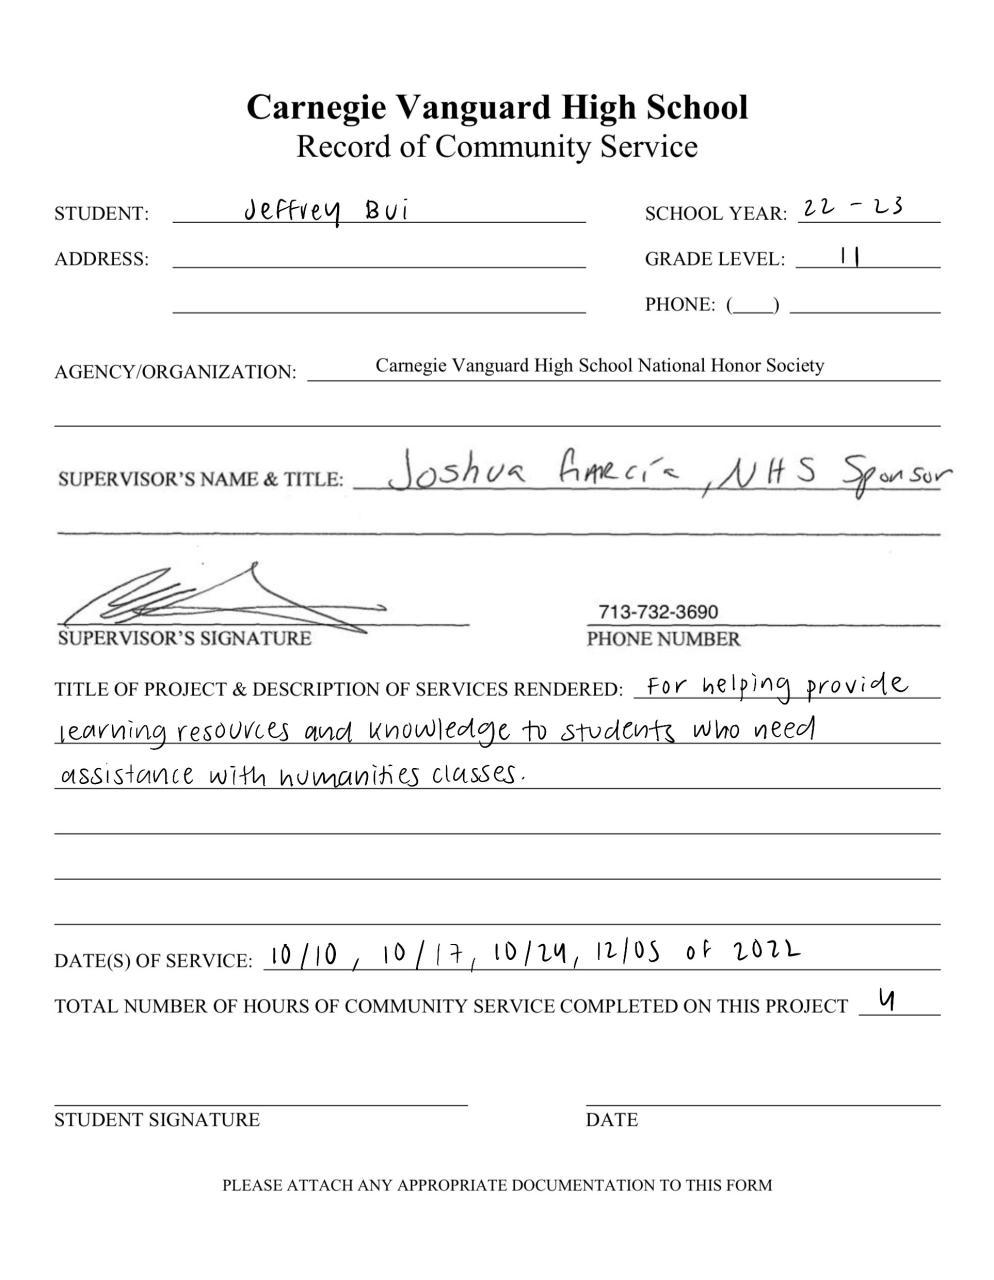 Carnegie Vanguard High School
Record of Community Service
STUDENT: Jeffrey Bui SCHOOL YEAR: 22-23
ADDRESS: GRADE LEVEL: 11
PHONE: (___)
AGENCY/ORGANIZATION: Carnegie Vanguard High School National Honor Society
SUPERVISOR'S NAME & TITLE: Joshua García, NHS Sponsor
713-732-3690
SUPERVISOR'S SIGNATURE PHONE NUMBER
TITLE OF PROJECT & DESCRIPTION OF SERVICES RENDERED: For helping provide
learning resources and knowledge to students who need
assistance with humanities classes.
DATE(S) OF SERVICE: 10/10, 10/17, 10/24, 12/05 of 2022
TOTAL NUMBER OF HOURS OF COMMUNITY SERVICE COMPLETED ON THIS PROJECT 4
STUDENT SIGNATURE DATE
PLEASE ATTACH ANY APPROPRIATE DOCUMENTATION TO THIS FORM